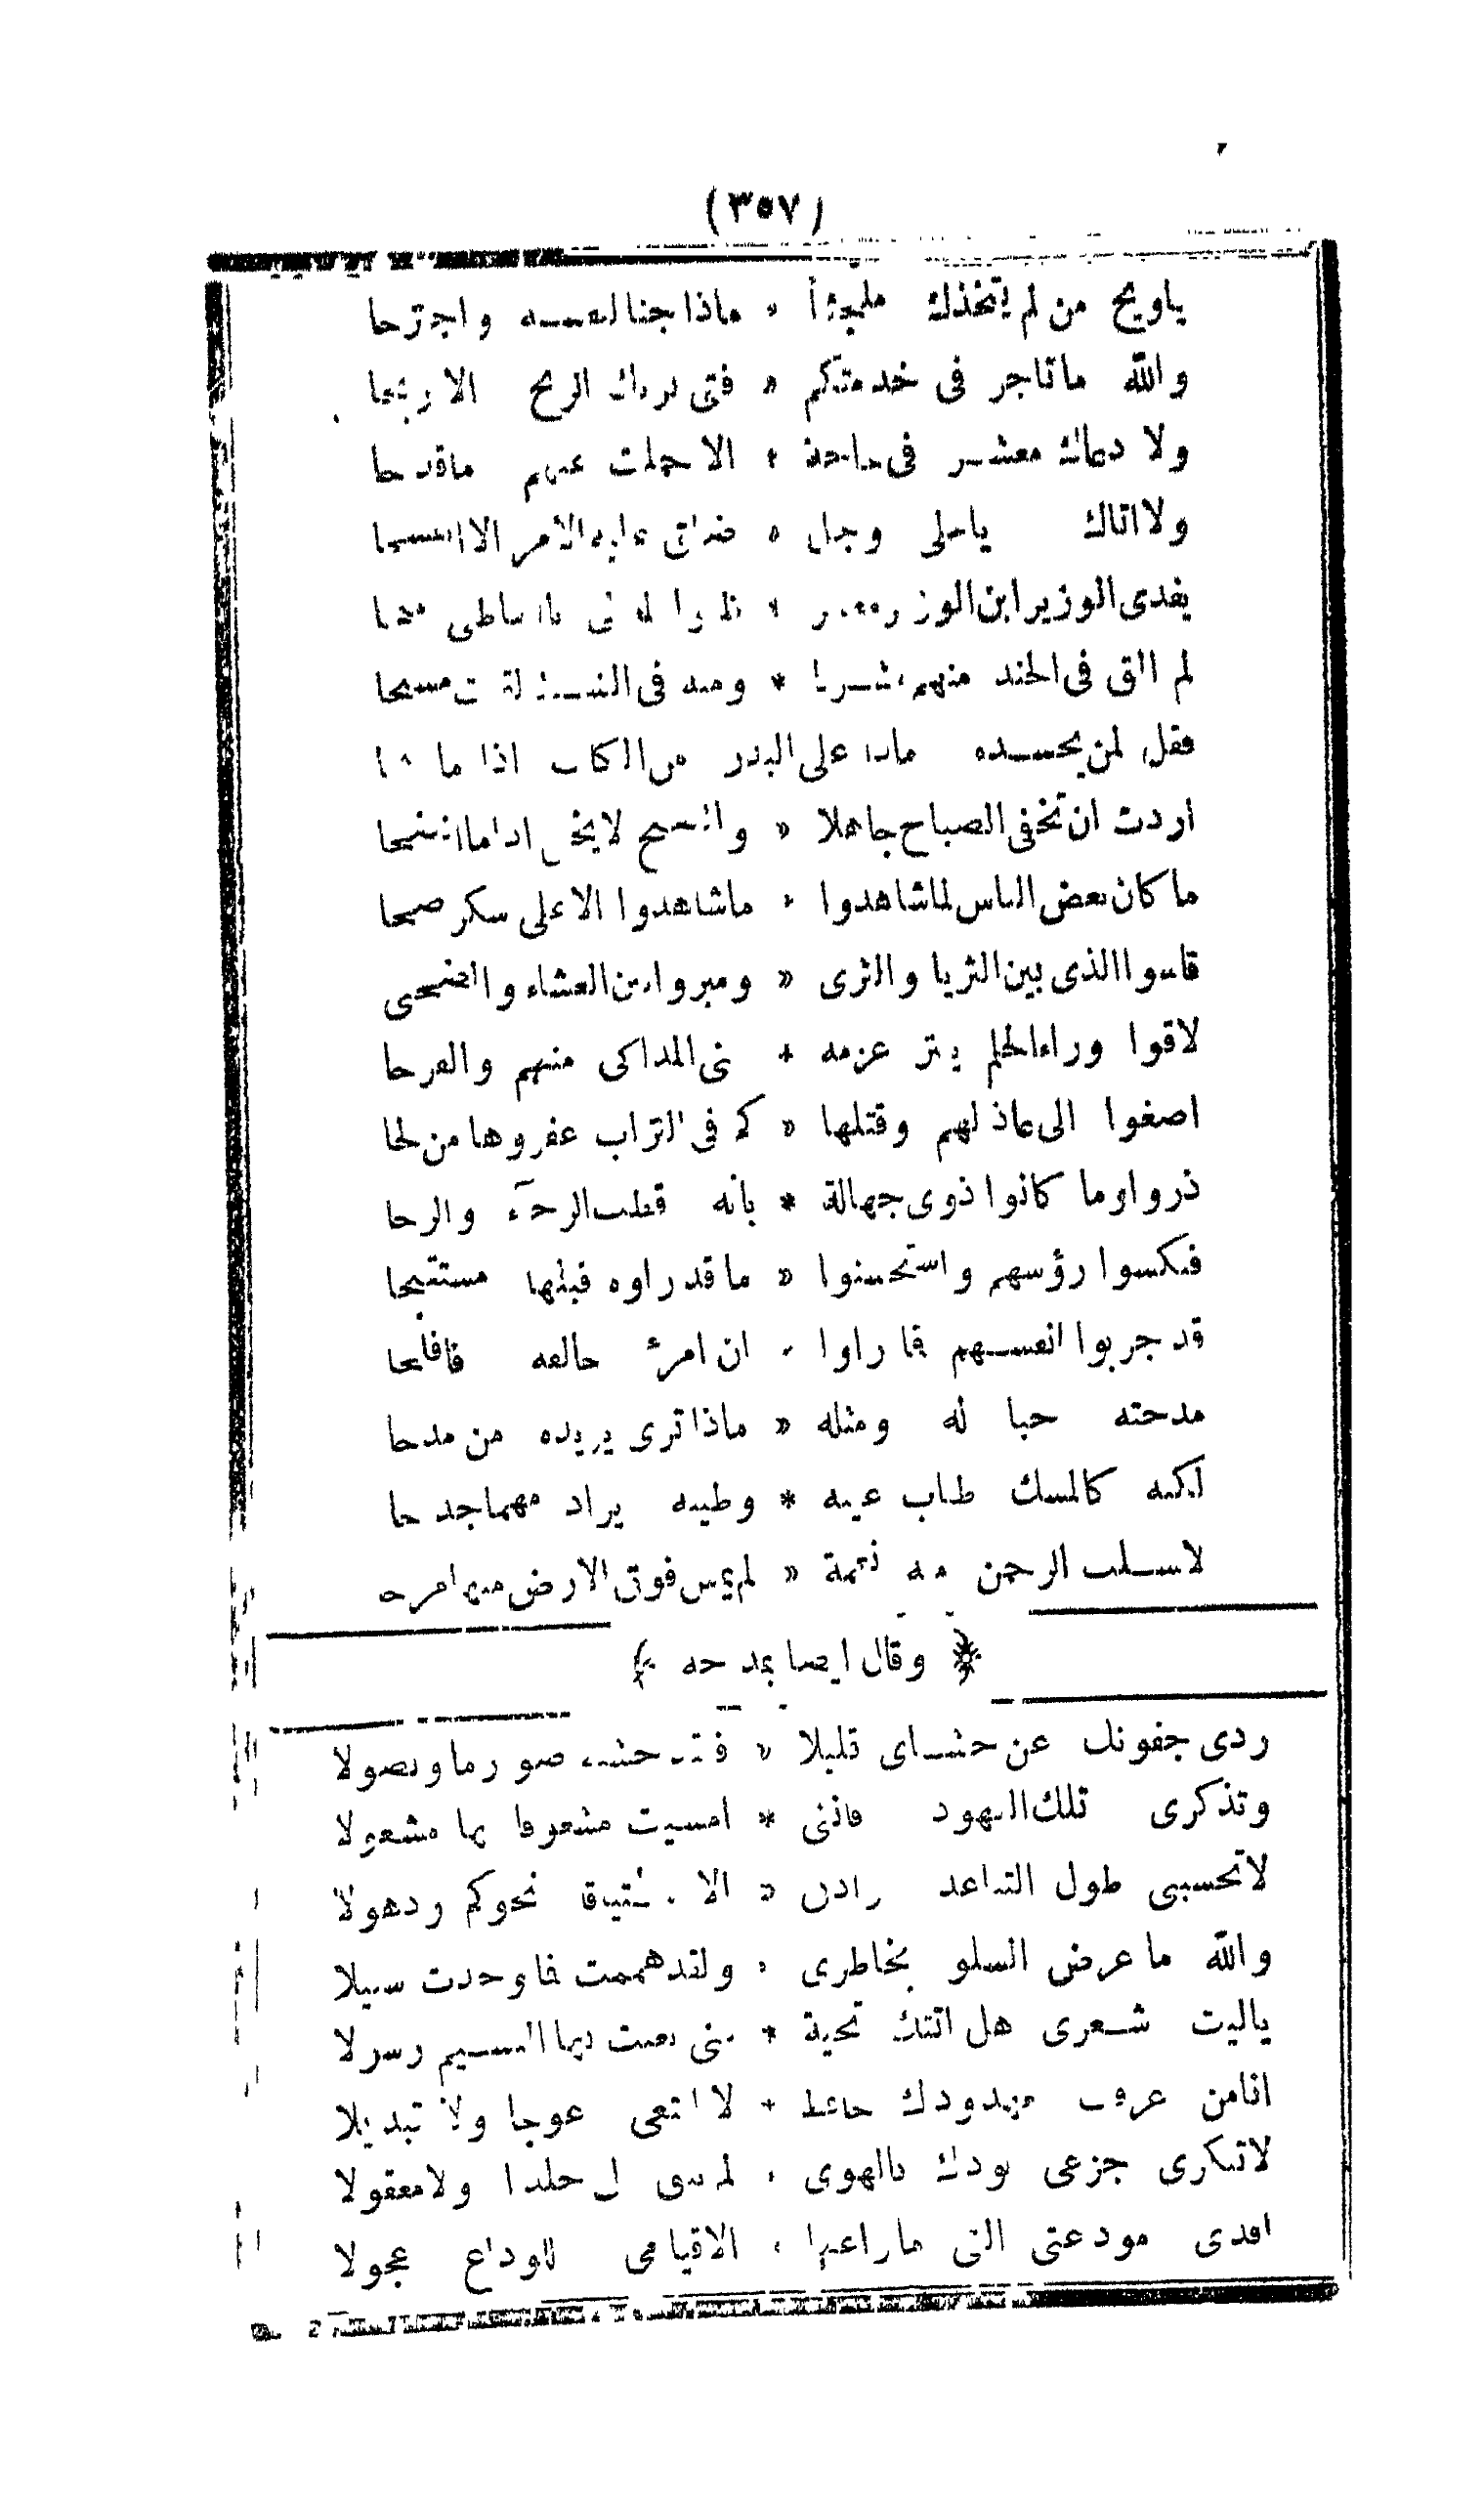 (٣٥٧)
ياويح من لم يتخذك ملجئا * ماذا جنا لنفسه واجترحا
والله ماتاجر فى خدمتكم * فتى الربح الا ربحا
ولا دعاك معشر فى حاجة * الا حملت عنهم ماقدحا
ولا اتاك ياعلى وجل * ضاق عليه الامر الا انفسحا
يفدى الوزير ابن الوزير معشر *
لم الق فى الجند منهم * ومنه فى
فقل لمن يحسده ماذا على البدر من الكلب اذا ما
اردت ان تخفى الصباح جاهلا * والصبح لا يخفى اذا ما اتضحا
ما كان بعض الناس لما شاهدوا * ماشاهدوا الا على سكر صحا
قاسوا الذى بين الثريا والثرى * وميزوا بين العشاء والضحى
لاقوا وراء الحلم عزمه * المذاكى منهم والقرحا
اصغوا الى عاذلهم وقتلها * كم فى التراب عفروها من لحا
ذروا وما كانوا ذوى جهالة * بانه قطب الرحآء والرحا
فنكسوا رؤسهم واستحسنوا * ما قد راوه قبلها مستقبحا
قد جربوا انفسهم فما راوا * ان امرئ خالفه فافلحا
مدحته حبا له ومثله * ماذا ترى يريده من مدحا
لكنه كالمسك طاب عينه * وطيبه يزاد مهما جدحا
لاسلب الرحمن منه نعمة * لم يمس فوق الارض منها مرحا
﴿ وقال ايضا يمدحه ﴾
ردى جفونك عن حشاى قليلا * فقد حشته صوارما ونصولا
وتذكرى تلك العهود فاننى * امسيت مشغوفا بها مشغولا
لاتحسبى طول التباعد زادنى * الا نحوكم وذهولا
والله ما عرض السلو بخاطرى * ولقد هممت فما وجدت سبيلا
ياليت شعرى هل اتتك تحية * منى بعثت بها النسيم رسولا
انا من عرفت بعهد ودك حافظ * لا ابتغى عوجا ولا تبديلا
لاتنكرى جزعى بودك بالهوى * لم يبق لى جلدا ولا معقولا
افدى مودعتى التى ماراعها * الا قيامى للوداع عجولا